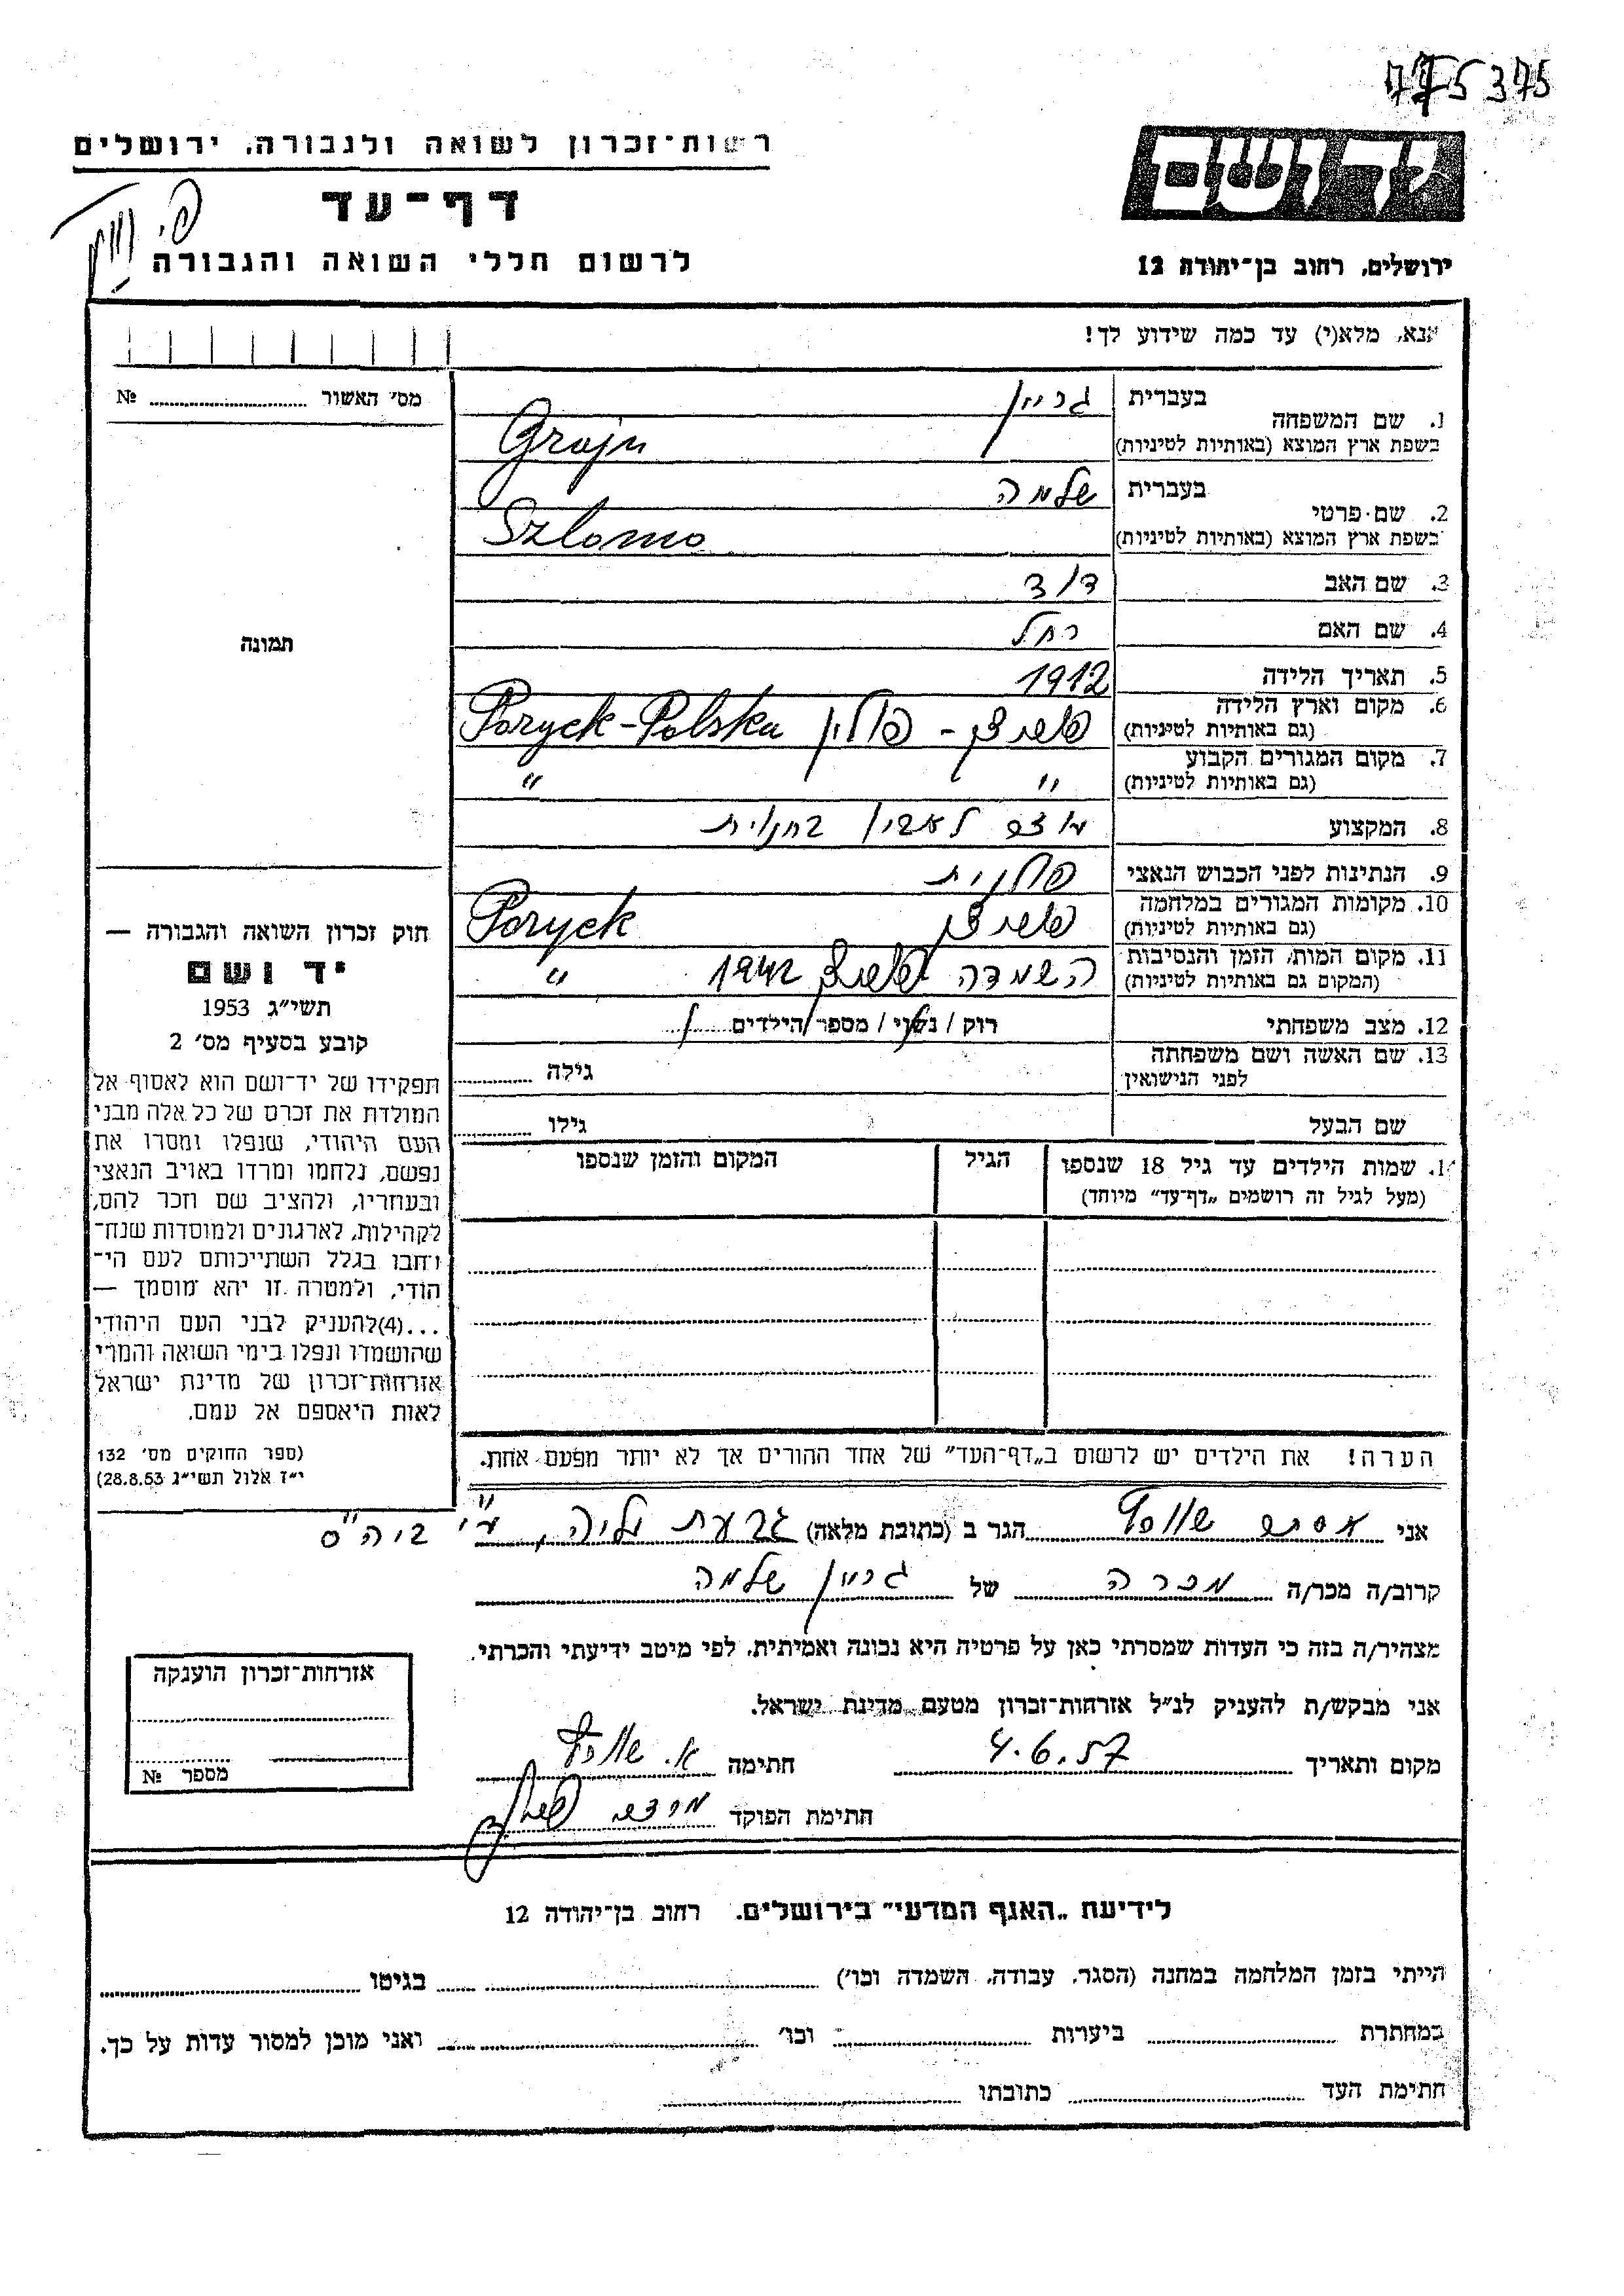 775375
יד ושם
רשות־זכרון לשואה ולגבורה, ירושלים
דף־עד
ירושלים, רחוב בן־יהודה 12
לרשום חללי השואה והגבורה
אנא, מלא(י) עד כמה שידוע לך!
מס׳ האשור № 
1. שם המשפחה
בעברית
בשפת ארץ המוצא (באותיות לטיניות)
Grojn
2. שם פרטי
בעברית שלמה
בשפת ארץ המוצא (באותיות לטיניות)
Szlomo
3. שם האב דוד
4. שם האם רחל
5. תאריך הלידה 1912
6. מקום וארץ הלידה
(גם באותיות לטיניות)
פוריצק - פולין Poryck-Polska
7. מקום המגורים הקבוע
(גם באותיות לטיניות)
" "
8. המקצוע בחנות
9. הנתינות לפני הכבוש הנאצי פולנית
10. מקומות המגורים במלחמה
(גם באותיות לטיניות)
פוריצק Poryck
11. מקום המות, הזמן והנסיבות
(המקום גם באותיות לטיניות)
השמדה 1942 "
12. מצב משפחתי רוק / נשוי / מספר הילדים
13. שם האשה ושם משפחתה
לפני הנישואין
גילה
שם הבעל גילו
14. שמות הילדים עד גיל 18 שנספו
(מעל לגיל זה רושמים „דף־עד" מיוחד)
הגיל
המקום והזמן שנספו
תמונה
חוק זכרון השואה והגבורה —
יד ושם
תשי״ג 1953
קובע בסעיף מס׳ 2
תפקידו של יד־ושם הוא לאסוף אל
המולדת את זכרם של כל אלה מבני
העם היהודי, שנפלו ומסרו את
נפשם, נלחמו ומרדו באויב הנאצי
ובעוזריו, ולהציב שם וזכר להם,
לקהילות, לארגונים ולמוסדות שנח־
רחבו בגלל השתייכותם לעם הי־
הודי, ולמטרה זו יהא מוסמך —
...(4)להעניק לבני העם היהודי
שהושמדו ונפלו בימי השואה והמרי
אזרחות־זכרון של מדינת ישראל
לאות היאספם אל עמם.
(ספר החוקים מס׳ 132
י״ז אלול תשי״ג 28.8.53)
הערה! את הילדים יש לרשום ב„דף־העד" של אחד ההורים אך לא יותר מפעם אחת.
אני אסתר הגר ב (כתובת מלאה) גבעת ביה"ס
קרוב/ה מכר/ה מכרה של שלמה
מצהיר/ה בזה כי העדות שמסרתי כאן על פרטיה היא נכונה ואמיתית, לפי מיטב ידיעתי והכרתי.
אני מבקש/ת להעניק לנ״ל אזרחות־זכרון מטעם מדינת ישראל.
מקום ותאריך 4.6.57 חתימה א.
חתימת הפוקד
אזרחות־זכרון הוענקה
מספר №
לידיעת „האגף המדעי" בירושלים, רחוב בן־יהודה 12
הייתי בזמן המלחמה במחנה (הסגר, עבודה, השמדה וכו׳) בגיטו
במחתרת ביערות וכו׳ ואני מוכן למסור עדות על כך.
חתימת העד כתובתו